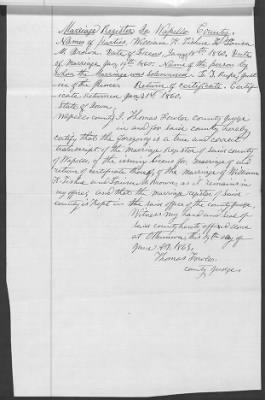 Marriage Register In Wapello County.
Names of Parties. William H. Fisher to Louisa
M. Brown. Date of License Jany 18th 1860. Date
of Marriage Jan. 19th 1860. Name of the person by
whom the Marriage was Solemnized.
ice of the Peace. Return of certificate. Certif-
icate Returned Jan 31st 1860.
State of Iowa
Wapello county I, Thomas Fowler, county Judge
in and for said county hereby
certify that the foregoing is a true and correct
transcript of the Marriage Register of said county
of Wapello, of the issuing license for Marriage and
return of certificate thereof, of the Marriage of William
H. Fisher and Louisa M. Brown, as it remains in
my office, and that the marriage register of said
county is kept in the said office of the county Judge.
Witness my hand and seal of
said county hereto affixed done
at Ottumwa this day of
June AD. 1863.
Thomas Fowler
County Judge